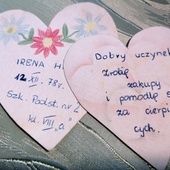 IRENA H
12 XII. 78 r.
Szk. Podst. nr
kl. VIII „a"
Dobry uczynek
Zrobię
zakupy
i pomodlę s
za cierpi
cych.